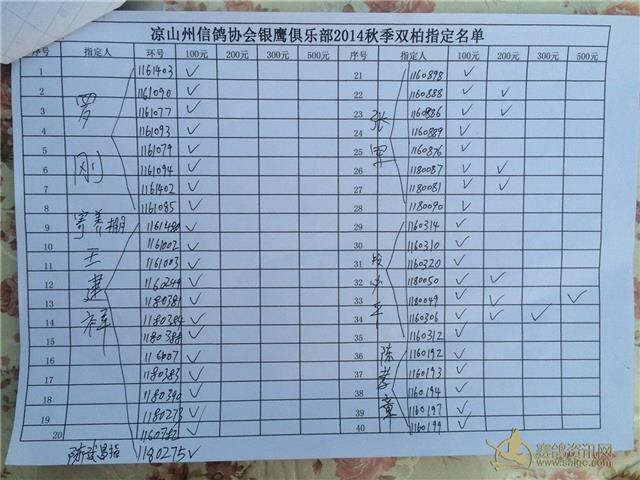 凉山州信鸽协会银鹰俱乐部2014秋季双柏指定名单
序号 指定人 环号 100元 200元 300元 500元 序号 指定人 100元 200元 300元 500元
1 1161403 ✓ 21 1160898 ✓
2 1161090 ✓ 22 1160888 ✓ ✓
3 1161077 ✓ 23 1160886 ✓ ✓
4 1161093 ✓ 24 1160889 ✓
5 1161079 ✓ 25 1160876 ✓
6 1161094 ✓ 26 1180087 ✓ ✓
7 1161402 ✓ 27 1180081 ✓ ✓
8 1161085 ✓ 28 1180090 ✓
9 1161480 ✓ 29 1160314 ✓
10 1161002 ✓ 30 1160310 ✓
11 1161003 ✓ 31 1160320 ✓
12 ✓ 32 1180050 ✓ ✓
13 1180381 ✓ 33 1180049 ✓ ✓
14 1180384 ✓ 34 1160306 ✓ ✓ ✓
15 1180388 ✓ 35 1160312 ✓
16 ✓ 36 1160192 ✓
17 1180383 ✓ 37 1160193 ✓
18 1180390 ✓ 38 1160194 ✓
19 1180273 ✓ 39 1160197 ✓
20 ✓ 40 1160199 ✓
罗刚
寄养棚
王建祥
张军
陈孝章
1180275 ✓
赛鸽资讯网
www.saige.com